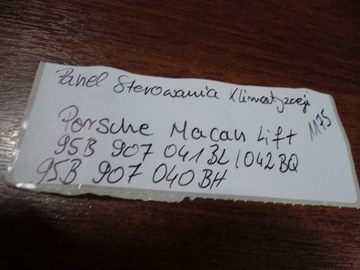 Panel Sterowania Klimatyzacji
Porsche Macan Lift 1175
95B 907 041BL/042BQ
95B 907 040BH